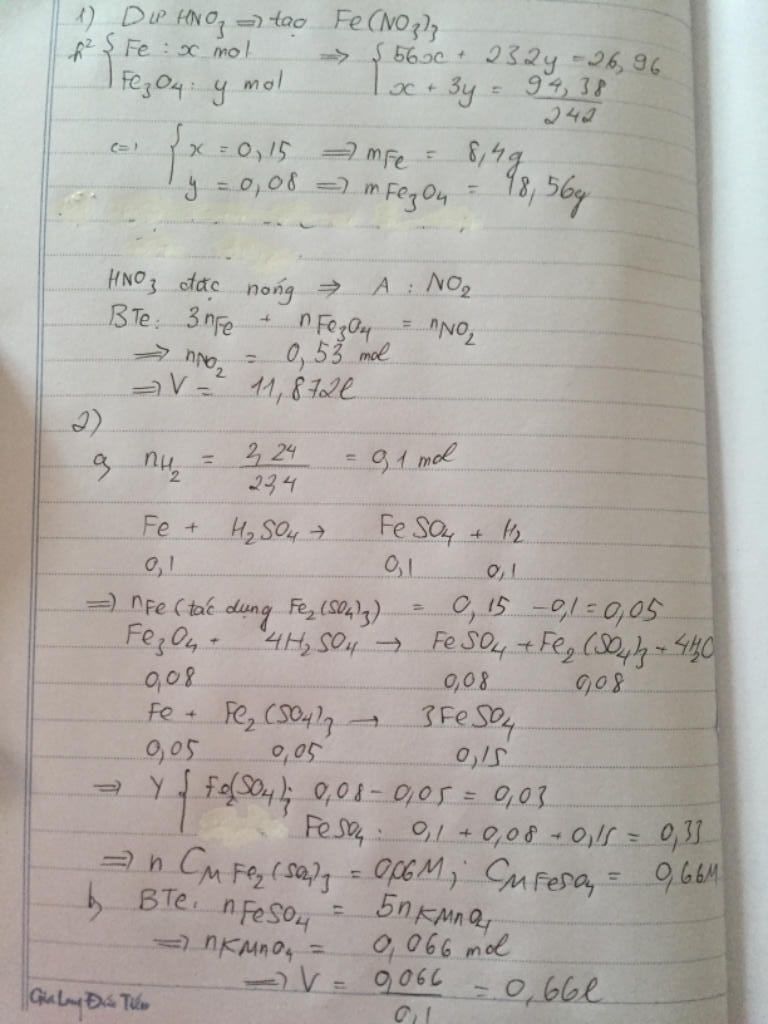 1) Dư HNO3 => tạo Fe(NO3)3
h² { Fe : x mol => { 56x + 232y = 26,96
Fe3O4 : y mol x + 3y = 94,38 / 242
<=> { x = 0,15 => mFe = 8,4g
y = 0,08 => mFe3O4 = 18,56g
HNO3 đặc nóng => A : NO2
BTe: 3nFe + nFe3O4 = nNO2
=> nNO2 = 0,53 mol
=> V = 11,872l
2)
a, nH2 = 2,24 / 22,4 = 0,1 mol
Fe + H2SO4 → FeSO4 + H2
0,1 0,1 0,1
=> nFe (tác dụng Fe2(SO4)3) = 0,15 - 0,1 = 0,05
Fe3O4 + 4H2SO4 → FeSO4 + Fe2(SO4)3 + 4H2O
0,08 0,08 0,08
Fe + Fe2(SO4)3 → 3FeSO4
0,05 0,05 0,15
=> Y { Fe2(SO4)3 : 0,08 - 0,05 = 0,03
FeSO4 : 0,1 + 0,08 + 0,15 = 0,33
=> n CM Fe2(SO4)3 = 0,06M ; CM FeSO4 = 0,66M
b, BTe: nFeSO4 = 5nKMnO4
=> nKMnO4 = 0,066 mol
=> V = 0,066 / 0,1 = 0,66l